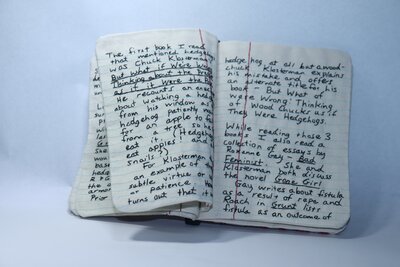 The first book I read
that mentioned hedgeh
was Chuck Klosterman
But What if We're Wrong
Thinking about the Pres
as if it Were the Pas
He recounts an anecdo
about watching a hedg
from his window as
hedgehog patiently wa
for an apple to fa
from a tree so he
eat it. (Hedgeho
eat apples and
snails.)
For Klosterman
an example of
subtle virtue or
or patience. He
turns out that th
hedgehog at all but a wood-
chuck. Klosterman explains
his mistake and offers
an alternate title for his
book - But What if
we're Wrong: Thinking
of Woodchucks as if
They Were Hedgehogs.
While reading those 3
books I also read a
collection of essays by
Roxane Gay - Bad
Feminist. She and
Klosterman both discuss
the novel Gone Girl
Gay writes about fistula
as a result of rape and
Roach in Grunt lists
fistula as an outcome of
Prior